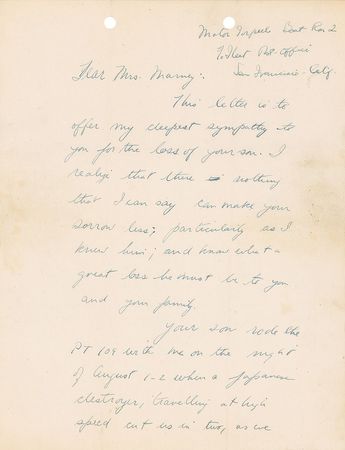 Motor Torpedo Boat Ron 2
Fleet Post Office
San Francisco - Calif.
Dear Mrs. Marney:
This letter is to
offer my deepest sympathy to
you for the loss of your son. I
realize that there is nothing
that I can say can make your
sorrow less; particularly as I
knew him; and know what a
great loss he must be to you
and your family.
Your son rode the
PT 109 with me on the night
of August 1-2 when a Japanese
destroyer, travelling at high
speed cut us in two, as we